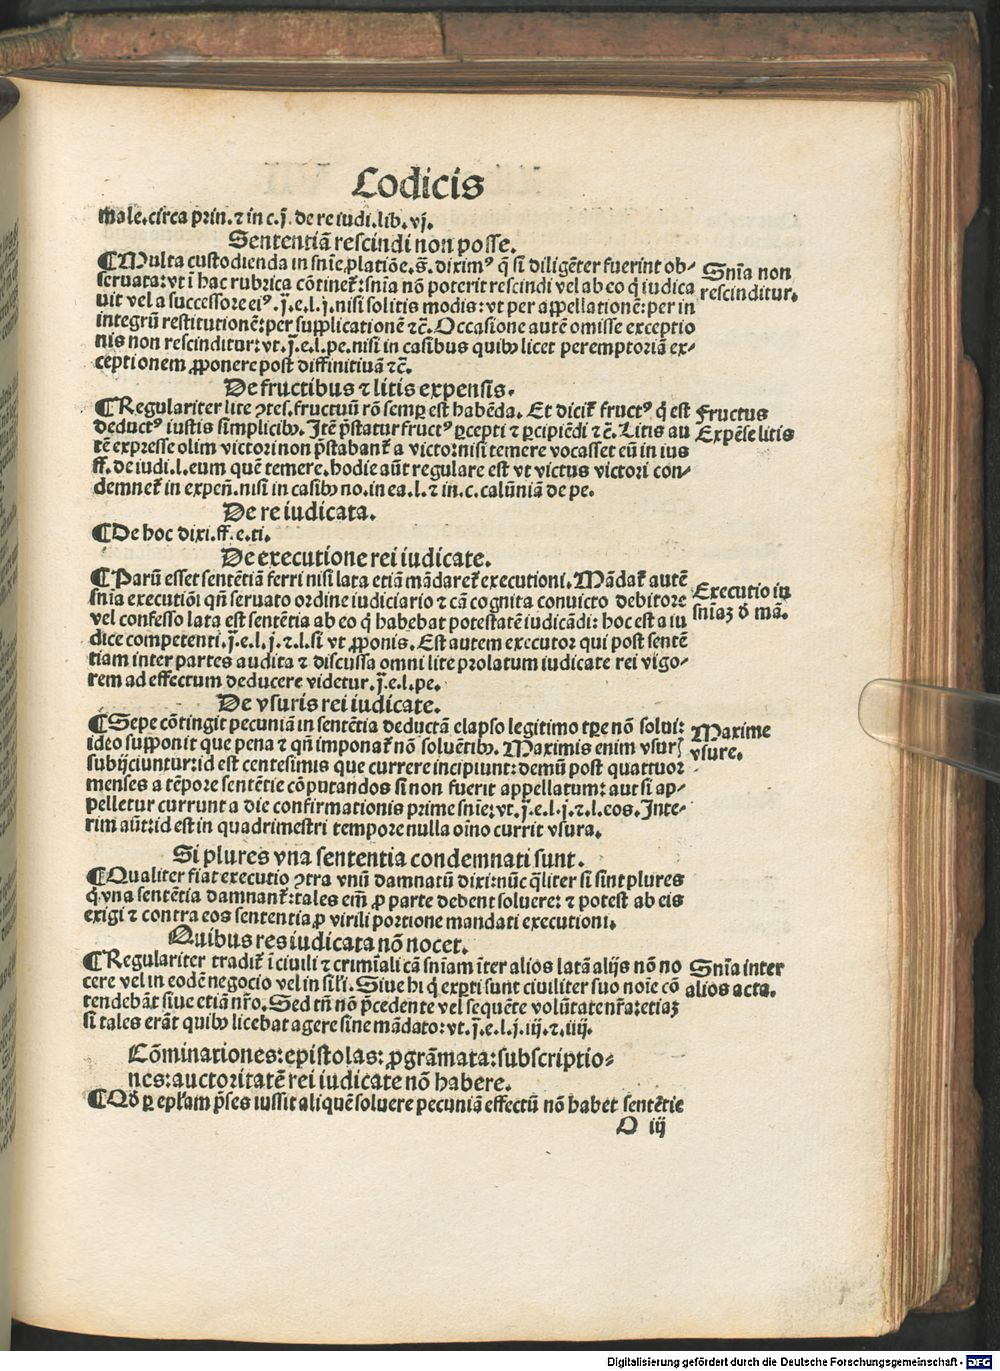 Codicis
male.circa prin.⁊ in c.j̄. de re iudi.lib.vj.
Sententiā rescindi non posse.
¶Multa custodienda in snīe ꝓlatiōe.s̄.diximꝰ q̄ si diligēter fuerint ob-
seruata:vt ī hac rubrica cōtinet̄:snīa nō poterit rescindi vel ab eo q̄ iudica
uit vel a successore eiꝰ.j̄.e.l.j.nisi solitis modis:vt per appellationē:per in
integrū restitutionē:per supplicationē ⁊c̄.Occasione autē omisse exceptio
nis non rescinditur:vt.j̄.e.l.pe.nisi in casibus quibꝫ licet peremptoriā ex-
ceptionem ꝓponere post diffinitiuā ⁊c̄.
Snīa non
rescinditur.
De fructibus ⁊ litis expensis.
¶Regulariter lite ꝯtes.fructuū rō semꝑ est habēda. Et dicit̄ fructꝰ q̄ est
deductꝰ iustis simplicibꝫ. Itē p̄statur fructꝰ ꝑcepti ⁊ ꝑcipiēdi ⁊c̄. Litis au
tē expresse olim victori non p̄stabant̄ a victo:nisi temere vocasset eū in ius
ff.de iudi.l.eum quē temere.hodie aūt regulare est vt victus victori con-
demnet̄ in expeñ.nisi in casibꝫ no.in ea.l.⁊ in.c.calūniā de pe.
Fructus
Expēse litis
De re iudicata.
¶De hoc dixi.ff.e.ti.
De executione rei iudicate.
¶Parū esset sentētiā ferri nisi lata etiā mādaret̄ executioni. Mādat̄ autē
snīa executiōi qn̄ seruato ordine iudiciario ⁊ cā cognita conuicto debitore
vel confesso lata est sentētia ab eo q̄ habebat potestatē iudicādi: hoc est a iu
dice competenti.j̄.e.l.j.⁊.l.si vt ꝓponis. Est autem executor qui post sentē
tiam inter partes audita ⁊ discussa omni lite prolatum iudicate rei vigo-
rem ad effectum deducere videtur.j̄.e.l.pe.
Executio iu
snīaꝫ ō mā.
De vsuris rei iudicate.
¶Sepe cōtingit pecuniā in sentētia deductā elapso legitimo tꝑe nō solui:
ideo supponit que pena ⁊ qn̄ imponat̄ nō soluētibꝫ. Maximis enim vsurꝭ
subijciuntur:id est centesimis que currere incipiunt:demū post quattuor
menses a tēpore sentētie cōputandos si non fuerit appellatum:aut si ap-
pelletur currunt a die confirmationis prime snīe:vt.j̄.e.l.j.⁊.l.eos. Inte-
rim aūt:id est in quadrimestri tempore nulla oīno currit vsura.
Maxime
vsure.
Si plures vna sententia condemnati sunt.
¶Qualiter fiat executio ꝯtra vnū damnatū dixi:nūc q̄liter si sint plures
q̄ vna sentētia damnant̄:tales em̄ ꝓ parte debent soluere: ⁊ potest ab eis
exigi ⁊ contra eos sententia ꝓ virili portione mandati executioni.
Quibus res iudicata nō nocet.
¶Regulariter tradit̄ ī ciuili ⁊ crimīali cā snīam īter alios latā alijs nō no
cere vel in eodē negocio vel in sil'i. Siue hi q̄ exꝑti sunt ciuiliter suo noīe cō
tendebāt siue etiā nr̄o. Sed tn̄ nō p̄cedente vel sequēte volūtate nr̄a:etiaꝫ
si tales erāt quibꝫ licebat agere sine mādato:vt.j̄.e.l.j.iij.⁊.iiij.
Snīa inter
alios acta.
Cōminationes:epistolas: ꝓgrāmata:subscriptio-
nes:auctoritatē rei iudicate nō habere.
¶Qd̄ ꝑ epl'am p̄ses iussit aliquē soluere pecuniā effectū nō habet sentētie
O iij
Digitalisierung gefördert durch die Deutsche Forschungsgemeinschaft - DFG